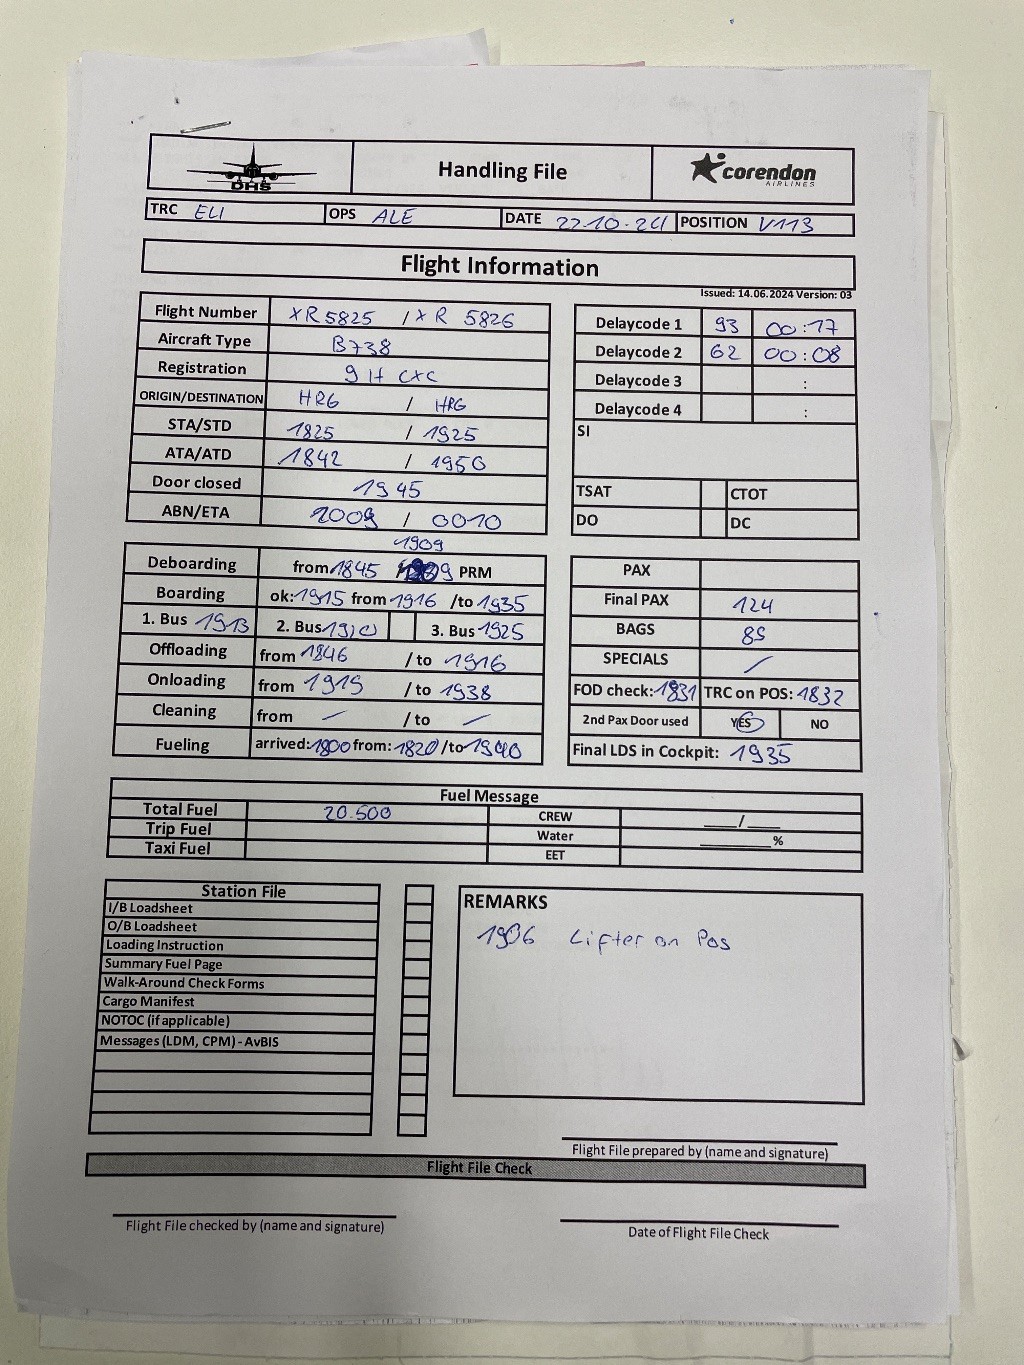 DHS
Handling File
corendon
AIRLINES
TRC ELI OPS ALE DATE 22.10.24 POSITION V113
Flight Information
Issued: 14.06.2024 Version: 03
Flight Number XR 5825 / XR 5826
Aircraft Type B738
Registration 9H CXC
ORIGIN/DESTINATION HRG / HRG
STA/STD 1825 / 1925
ATA/ATD 1842 / 1950
Door closed 1945
ABN/ETA 2009 / 0010
Delaycode 1 93 00:17
Delaycode 2 62 00:08
Delaycode 3 :
Delaycode 4 :
SI
TSAT CTOT
DO DC
1909
Deboarding from 1845 PRM
Boarding ok: 1915 from 1916 /to 1935
1. Bus 1913 2. Bus 3. Bus 1925
Offloading from 1846 / to 1916
Onloading from 1919 / to 1938
Cleaning from / / to /
Fueling arrived: 1800 from: 1820 /to 1940
PAX
Final PAX 124
BAGS 89
SPECIALS /
FOD check: 1831 TRC on POS: 1832
2nd Pax Door used YES NO
Final LDS in Cockpit: 1935
Fuel Message
Total Fuel 20.500 CREW ___/___
Trip Fuel Water ______%
Taxi Fuel EET
Station File
I/B Loadsheet
O/B Loadsheet
Loading Instruction
Summary Fuel Page
Walk-Around Check Forms
Cargo Manifest
NOTOC (if applicable)
Messages (LDM, CPM) - AvBIS
REMARKS
1906 Lifter on Pos
Flight File prepared by (name and signature)
Flight File Check
Flight File checked by (name and signature)
Date of Flight File Check